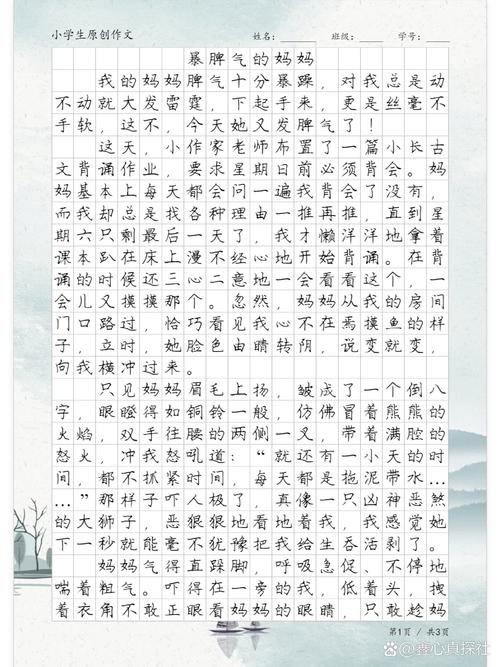 小学生原创作文
姓名：
班级：
学号：
暴脾气的妈妈
我的妈妈脾气十分暴躁，对我总是动
不动就大发雷霆，下起手来，更是丝毫不
手软，这不，今天她又发脾气了！
这天，小作家老师布置了一篇小长古
文背诵作业，要求星期日前必须背会。妈
妈基本上每天都会问一遍我背会了没有，
而我却总是找各种理由一推再推，直到星
期六只剩最后一天了，我才懒洋洋地拿着
课本趴在床上漫不经心地开始背诵。在背
诵的时候还三心二意地一会看看这个，一
会儿又摸摸那个。忽然，妈妈从我的房间
门口路过，恰巧看见我心不在焉摸鱼的样
子，立时，她脸色由晴转阴，说变就变，
向我横冲过来。
只见妈妈眉毛上扬，皱成了一个倒八
字，眼瞪得如铜铃一般，仿佛冒着熊熊的
火焰，双手往腰的两侧一叉，带着满腔的
怒火，冲我怒吼道：“就还有一小天的时
间，都不抓紧时间，每天都是拖泥带水…
…”那样子吓人极了，真像一只凶神恶煞
的大狮子，恶狠狠地看着我，我感觉她
下一秒就能毫不犹豫把我给生吞活剥了。
妈妈气得直跺脚，呼吸急促、不停地
喘着粗气。吓得在一旁的我，低着头，拽
着衣角不敢正眼看妈妈的眼睛，只敢趁妈
第1页 / 共3页
鑫心真探社